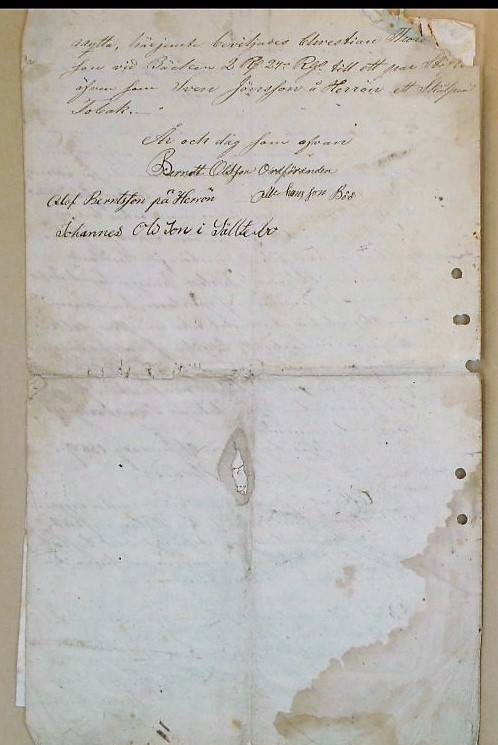 nytta, härjemte beviljades Christian Thor
son vid Bäcken 2 Rd 24 s Rgs till ett par
äfven som Sven Jönsson å Herrön ett
Tobak.
År och dag som ofvan
Berndt Olsson Ordföranden
Olof Berntsson på Herrön
Johannes Olsson i Sältebo